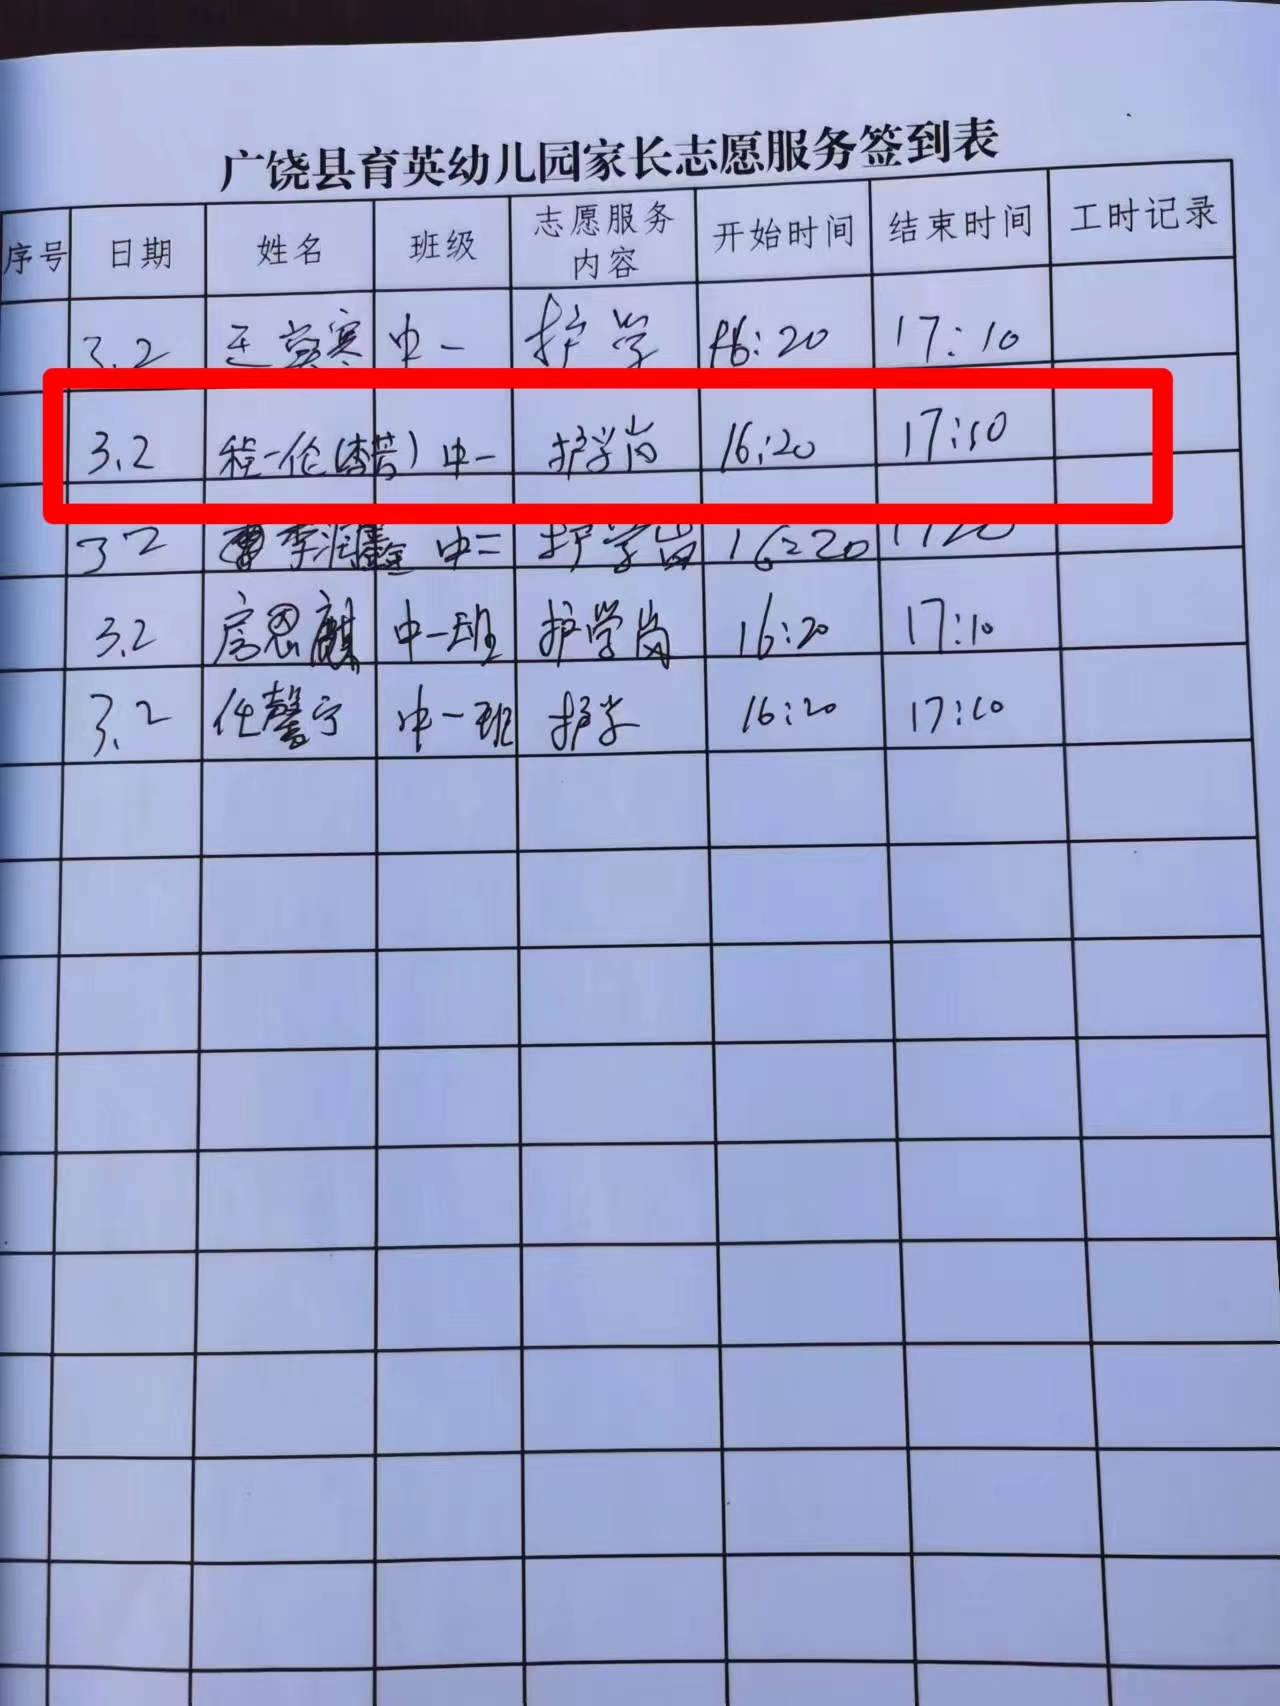 广饶县育英幼儿园家长志愿服务签到表
序号 日期 姓名 班级 志愿服务内容 开始时间 结束时间 工时记录
3.2 中一 护学 16:20 17:10
3.2 程一伦(李芸) 中一 护学岗 16:20 17:10
3.2 李润鑫 中二 护学岗 16:20
3.2 房恩麒 中一班 护学岗 16:20 17:10
3.2 任馨宁 中一班 护学 16:20 17:10